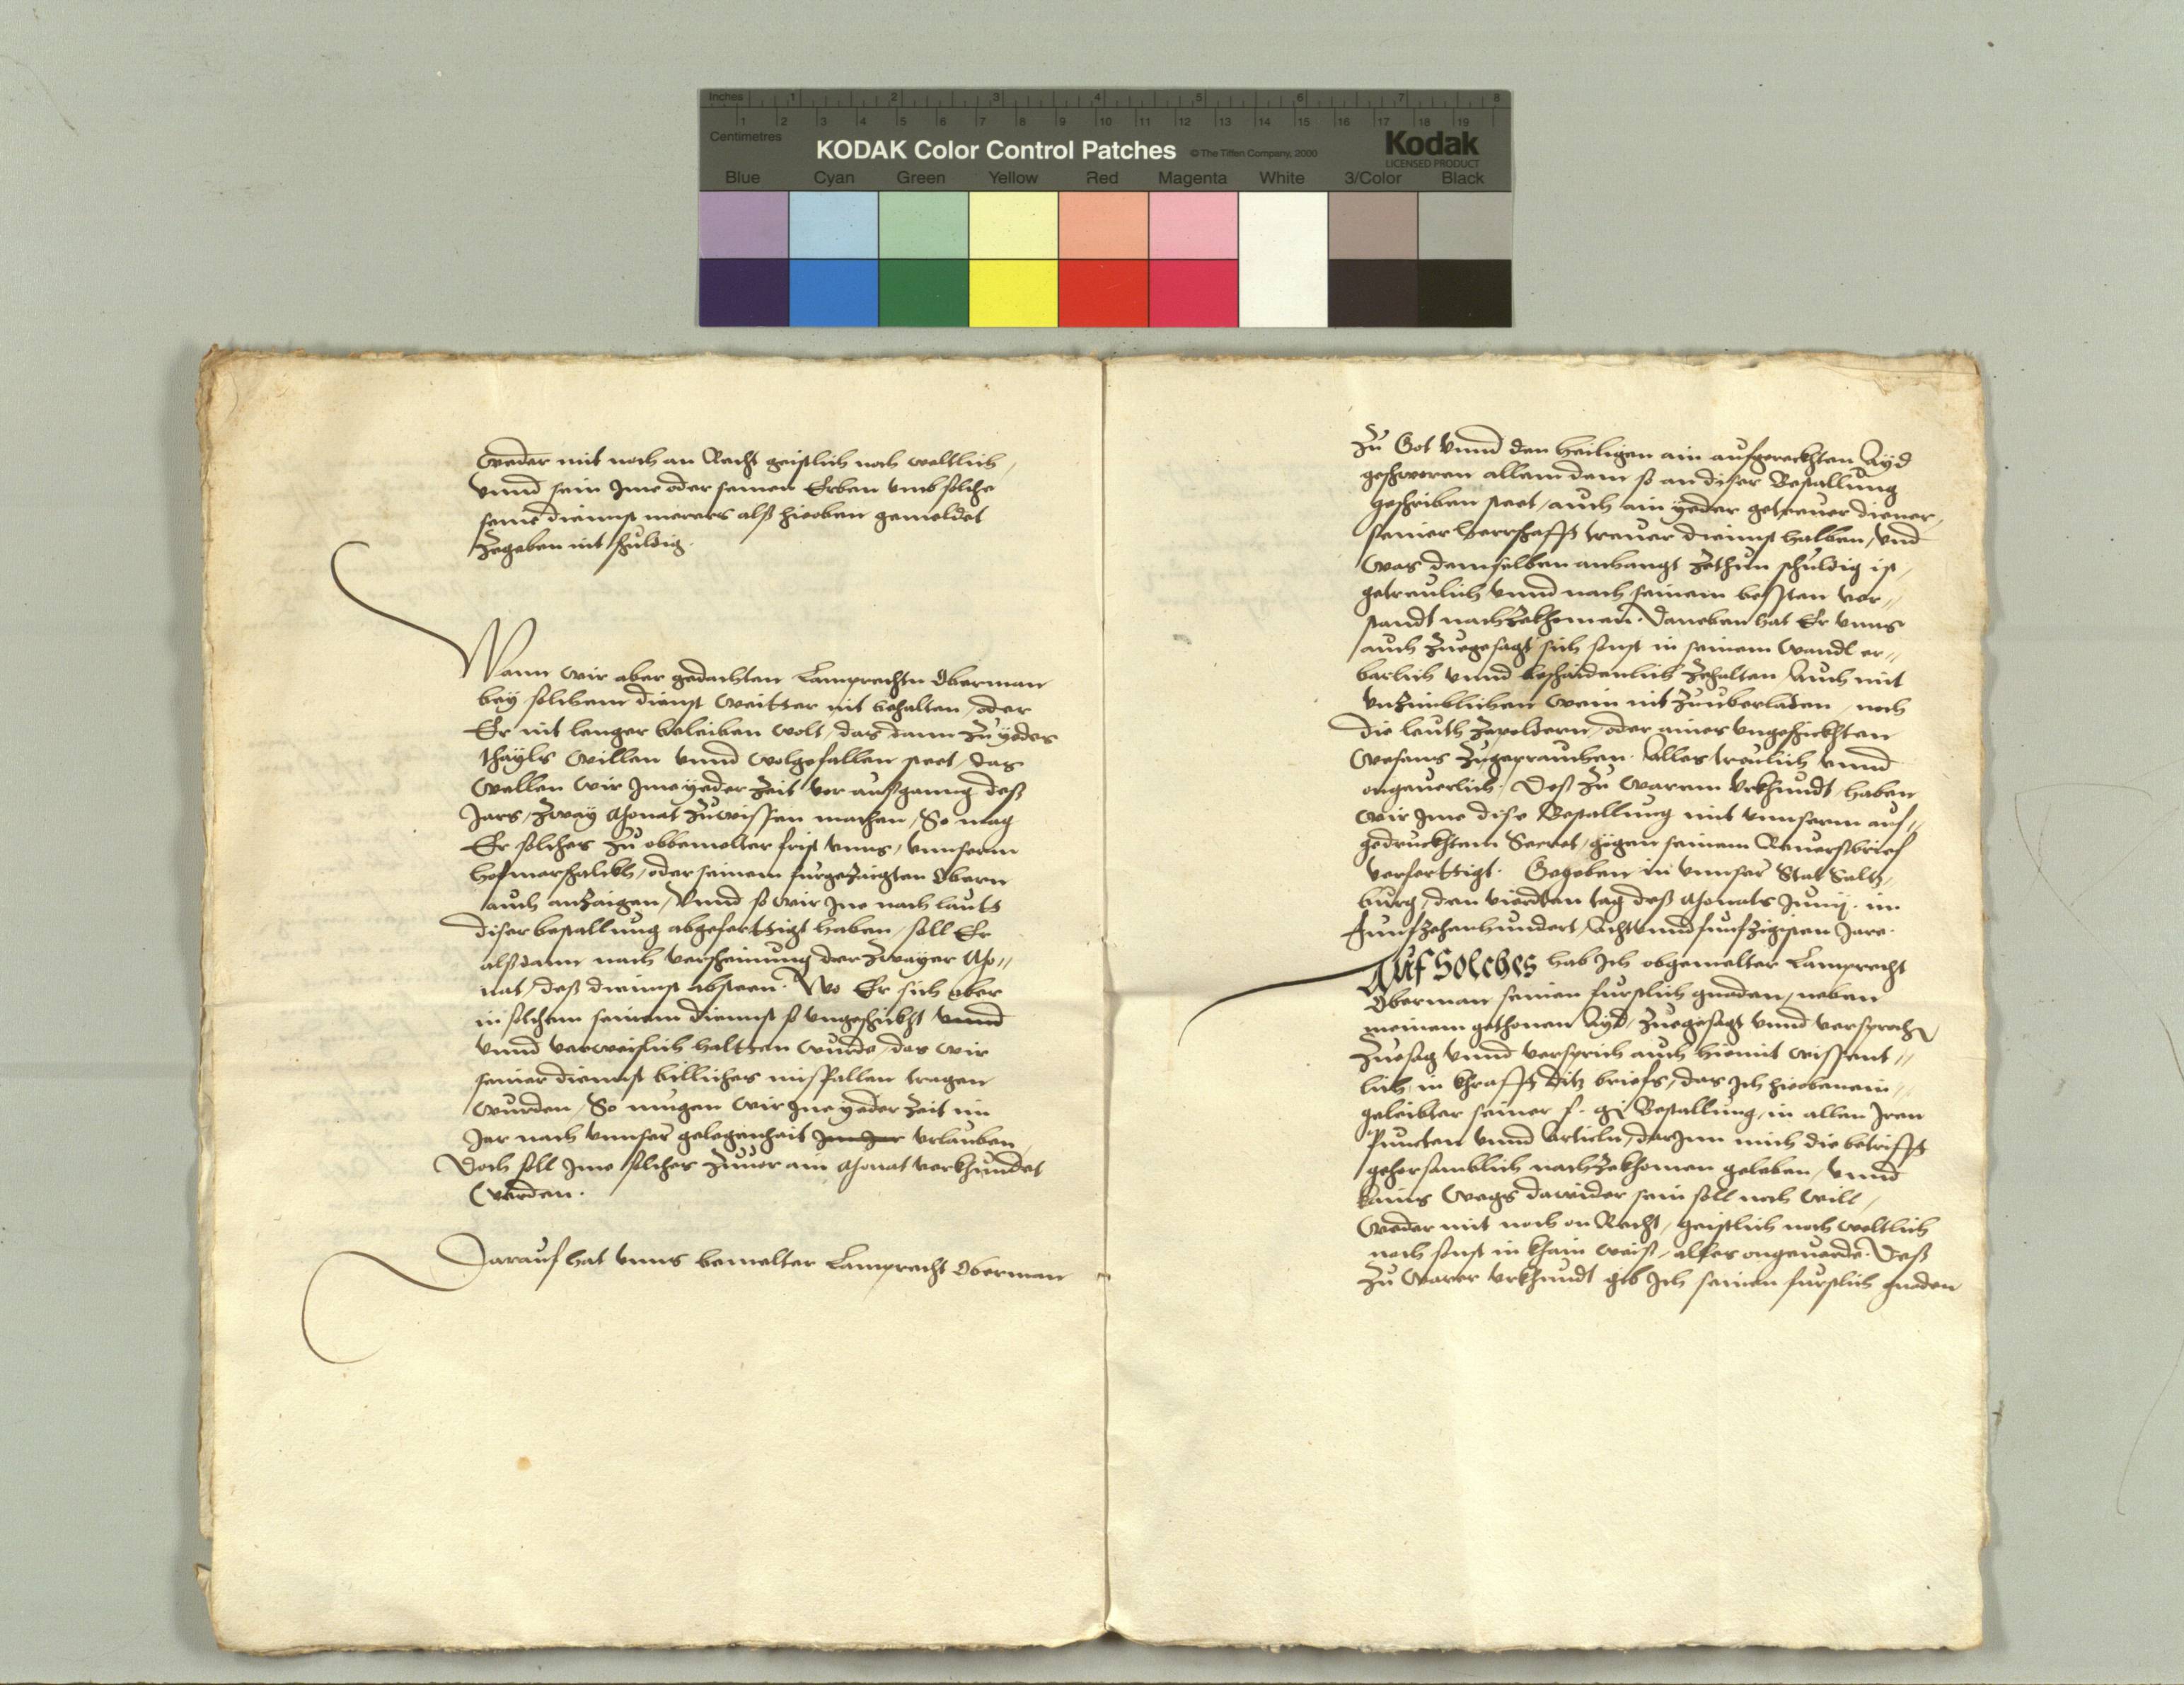 Inches 1 2 3 4 5 6 7 8
1 2 3 4 5 6 7 8 9 10 11 12 13 14 15 16 17 18 19
Centimetres
KODAK Color Control Patches © The Tiffen Company, 2000 Kodak
LICENSED PRODUCT
Blue Cyan Green Yellow Red Magenta White 3/Color Black
weder mit noch an Recht geistlich noch weltlich,
vnnd sein Jme oder seinen Erben vmb solche
seine diennst merers alß hieoben gemeldet
zegeben nit schuldig.
Wann wir aber gedachten Lamprechtn Oberman
bey solchem dienst weitter nit behalten, oder
Er nit lenger beleiben wolt, das dann zu yedes
thayls willen vnnd wolgefallen steet, das
wellen wir Jme yeder Zeit vor außganng deß
Jars, zway Monat zuwissen machen, So mag
Er solches zu obbemelter frist vnns, vnnserm
hofmarschalckh, oder seinem furgezaigten Obern
auch anzaigen, Vnnd so wir Jne nach lauts
diser bestallung abgeferttigt haben, soll Er
alßdann nach verscheinung der zwayer Mo-
nat, deß diennst absteen. Wo Er sich aber
in solchem seinem diennst so vngeschickht vnnd
vnnd verweislich haltten wurde, das wir
seiner diennst billiches misfallen tragen
wurden, So mugen wir Jne yeder Zeit im
Jar nach vnnser gelegenhait Jm Jar vrlauben,
Doch soll Jme solches zuuor ain Monat verkhundet
werden.
Darauf hat vnns bemelter Lamprecht Oberman
zu Got vnnd den heiligen ain aufgereckhten Ayd
geschworen allem dem so an diser Bestallung
geschriben steet, auch ain yeder getreuer diener,
seiner herrschafft treuer diennst halben, vnd
was demselben anhangt zethun schuldig ist,
getreulich vnnd nach seinem bessten ver-
standt nachzekhomen. Daneben hat Er vnns
auch zuegesagt sich sonst in seinem wandl er-
barlich vnnd beschaidenlich zehalten Auch mit
vnzimblichen wein nit zuuberladen, noch
die leuth zepoldern, oder aines vngeschickhten
wesens zugeprauchen. Alles treulich vnnd
ongeuerlich. Deß zu warem vrkhundt, haben
wir Jme dise Bestallung mit vnnserm auf-
gedruckhtem Secret, gegen seinem Reuerßbrief
verferttigt. Gegeben in vnnser Stat Saltz-
burg, den vierdten tag deß Monats Junij. im
Funfzehenhundert, Achtvnndfunfzigisten Jare.
Auf Solches hab Jch obgemelter Lamprecht
Oberman seinen furstlich gnaden, neben
meinem gethonen Ayd, zuegesagt vnnd versprochen
zuesag vnnd versprich auch hiemit wissent-
lich, in khrafft ditz briefs, das Jch hieobenein-
geleibter seiner f. g. Bestallung, in allen Jren
Puncten vnnd Articln, darjnn mich die betrifft
gehorsamblich nachzekhomen geleben, vnnd
kains wegs dawider sein soll noch will,
weder mit noch on Recht, geistlich noch weltlich
noch sonst in khain weiß, alles ongeuerde. Deß
zu warer vrkhundt gib Jch seinen furstlich gnaden